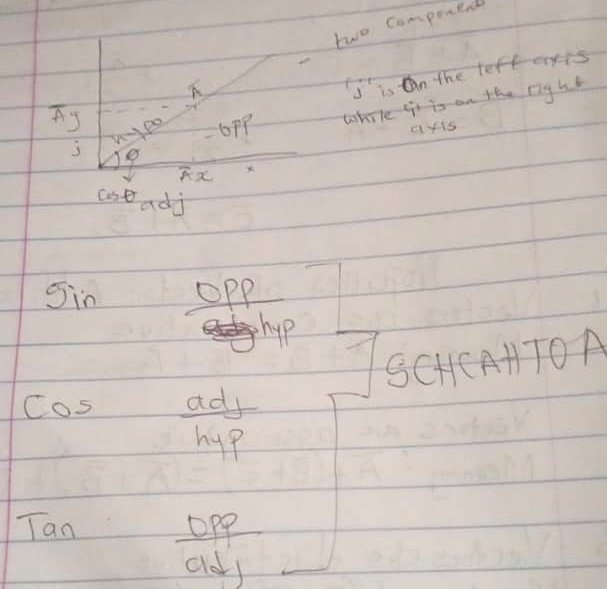 two component
"j" is on the left axis
while "i" is on the right
axis
A
Ay
hypo
opp
j
θ
Ax
x
cosθ
adj
Sin opp
hyp
SCHCAHTOA
Cos adj
hyp
Tan opp
adj